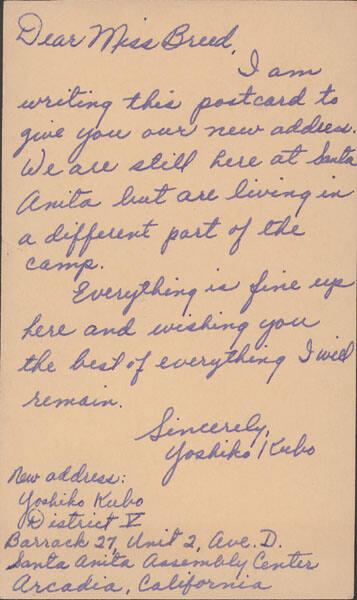 Dear Miss Breed,
I am
writing this postcard to
give you our new address.
We are still here at Santa
Anita but are living in
a different part of the
camp.
Everything is fine up
here and wishing you
the best of everything I will
remain.
Sincerely,
Yoshiko Kubo
New address:
Yoshiko Kubo
District V
Barrack 27, Unit 2, Ave. D.
Santa Anita Assembly Center
Arcadia, California